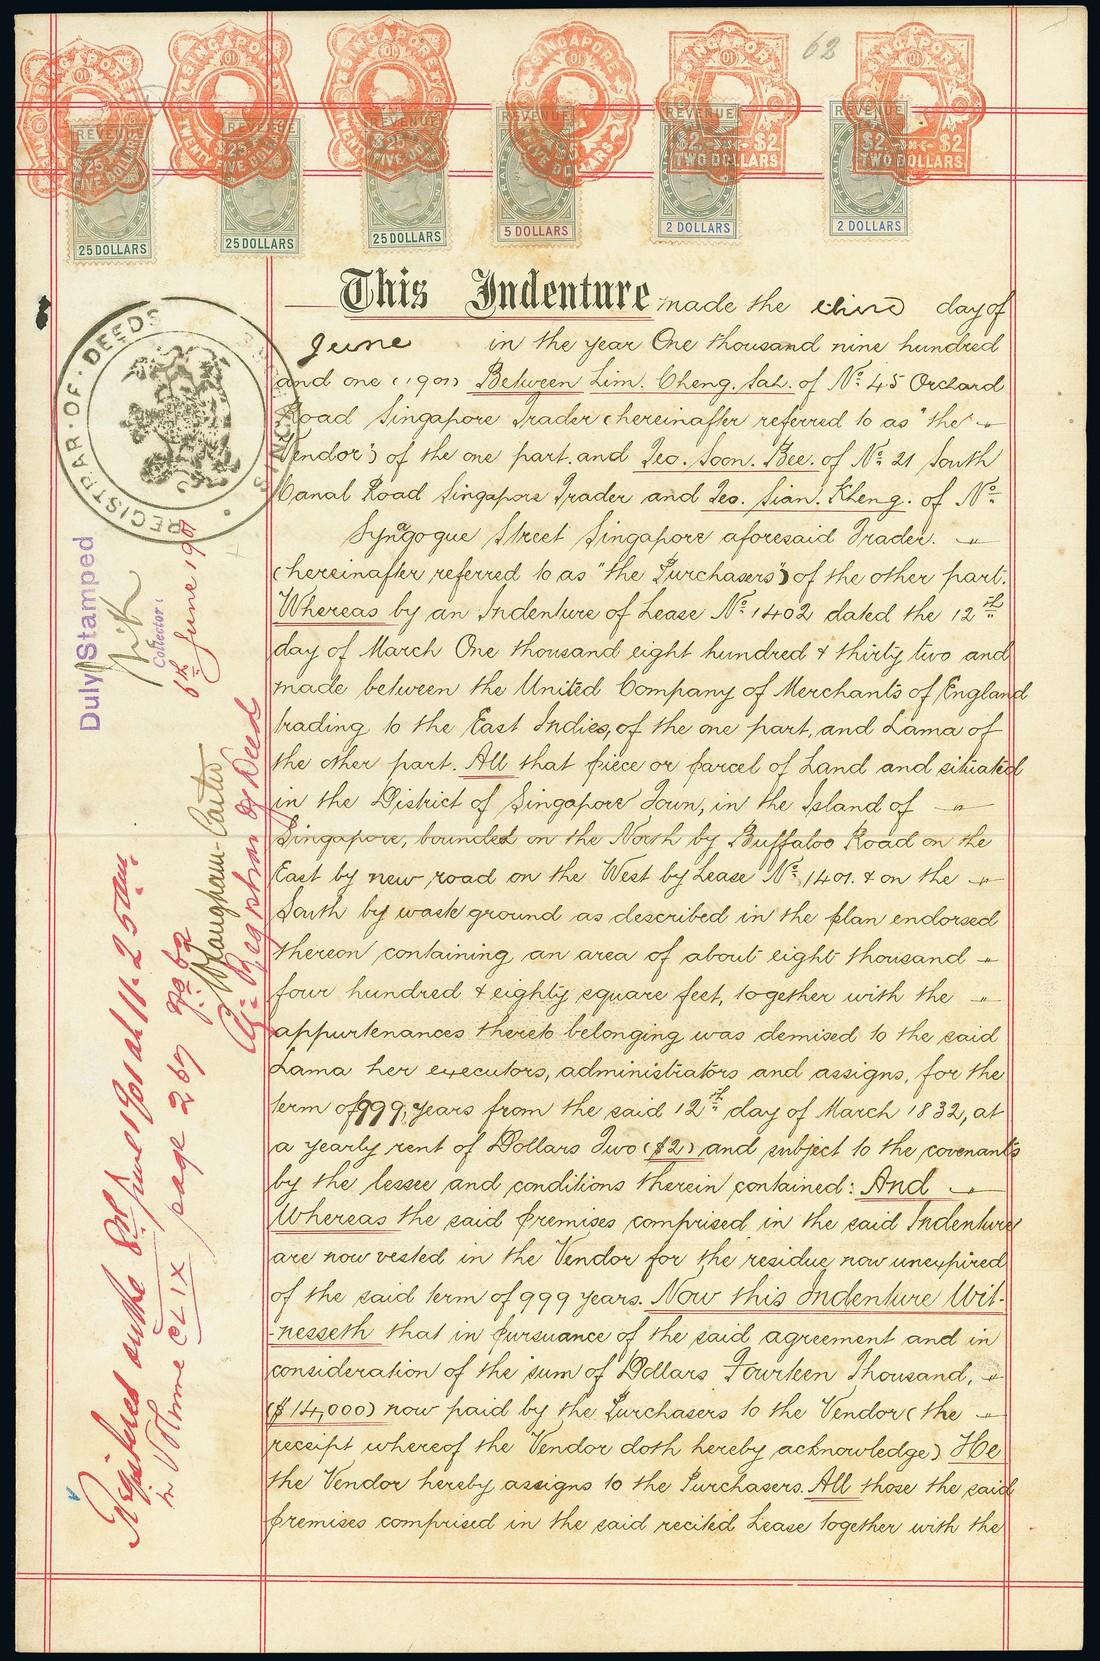 62
SINGAPORE SINGAPORE SINGAPORE SINGAPORE SINGAPORE SINGAPORE
REVENUE REVENUE REVENUE REVENUE REVENUE REVENUE
$25 $25 $25 $5 $2. $2 $2. $2
TWENTY FIVE DOLLARS TWENTY FIVE DOLLARS TWENTY FIVE DOLLARS FIVE DOLLARS TWO DOLLARS TWO DOLLARS
25 DOLLARS 25 DOLLARS 25 DOLLARS 5 DOLLARS 2 DOLLARS 2 DOLLARS
This Indenture made the third day of
June in the year One thousand nine hundred
and one (1901) Between Lim. Cheng. Sah. of No. 45 Orchard
Road Singapore Trader (hereinafter referred to as "the
Vendor") of the one part. and Teo. Soon. Bee. of No. 21 South
Canal Road Singapore Trader and Teo. Sian. Kheng. of No.
Synagogue Street Singapore aforesaid Trader.
(hereinafter referred to as "the Purchasers") of the other part.
Whereas by an Indenture of Lease No. 1402 dated the 12th
day of March One thousand eight hundred & thirty two and
made between the United Company of Merchants of England
trading to the East Indies, of the one part, and Lama of
the other part. All that piece or parcel of Land and situated
in the District of Singapore Town, in the Island of
Singapore, bounded on the North by Buffaloo Road on the
East by new road on the West by Lease No. 1401. & on the
South by waste ground as described in the plan endorsed
thereon containing an area of about eight thousand
four hundred & eighty square feet, together with the
appurtenances thereto belonging was demised to the said
Lama her executors, administrators and assigns, for the
term of 999, years from the said 12th day of March 1832, at
a yearly rent of Dollars Two ($2) and subject to the covenants
by the lessee and conditions therein contained: And
Whereas the said premises comprised in the said Indenture
are now vested in the Vendor for the residue now unexpired
of the said term of 999 years. Now this Indenture Wit-
-nesseth that in pursuance of the said agreement and in
consideration of the sum of Dollars Fourteen Thousand,
($14,000) now paid by the Purchasers to the Vendor (the
receipt whereof the Vendor doth hereby acknowledge) He
the Vendor hereby assigns to the Purchasers. All those the said
premises comprised in the said recited Lease together with the
REGISTRAR·OF·DEEDS
SINGAPORE
Duly Stamped
Collector:
6th June 1901
Registered on the 8th June 1901 at 11.25 am.
in Volume CLIX page 267 No 62
Maugham-Carter
Ag: Registrar of Deed